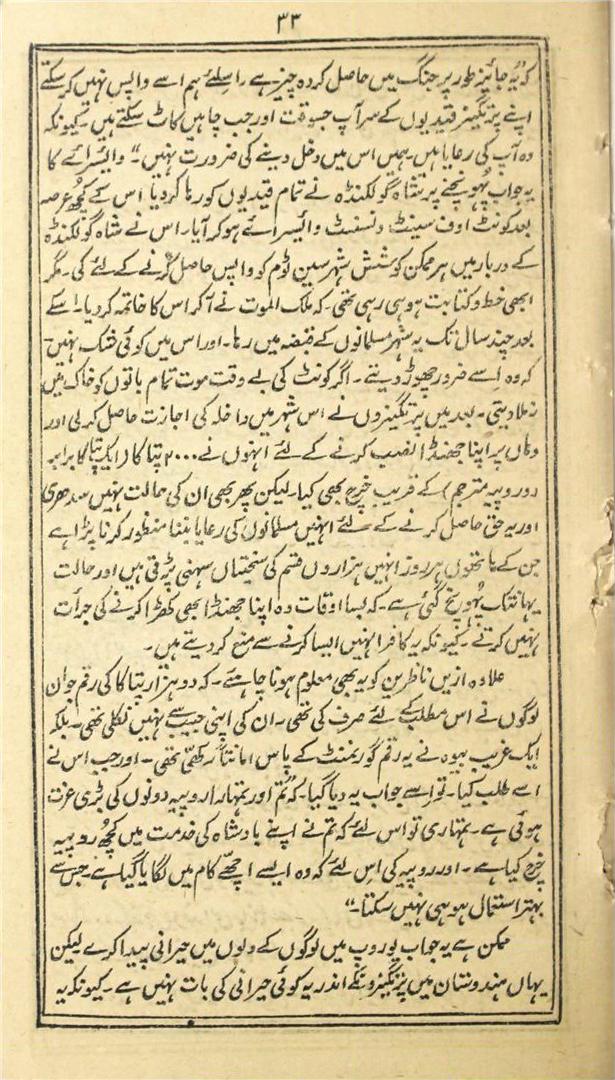 ۳۳
کہ "یہ جائیز طور پر جنگ میں حاصل کردہ چیز ہے۔ اسلئے ہم اسے واپس نہیں کرسکتے
اپنے پرتگیز قیدیوں کے سر آپ جسوقت اور جب چاہیں کاٹ سکتے ہیں۔ کیونکہ
وہ آپ کی رعایا ہیں۔ ہمیں اس میں دخل دینے کی ضرورت نہیں"۔ وایسرائے کا
یہ جواب پہونچنے پر شاہ گولکنڈہ نے تمام قیدیوں کو رہا کردیا اس کے کچھ عرصہ
بعد کونٹ اوف سینٹ ونسنٹ وائیسرائے ہوکر آیا۔ اس نے شاہ گولکنڈہ
کے دربار میں ہر ممکن کوشش شہر سین ٹوم کو واپس حاصل کرنے کے لئے کی۔ مگر
ابھی خط و کتابت ہو ہی رہی تھی۔ کہ ملک الموت نے آکر اس کا خاتمہ کردیا۔ اسکے
بعد چند سال تک یہ شہر مسلمانوں کے قبضہ میں رہا۔ اور اس میں کوئی شک نہیں
کہ وہ اسے ضرور چھوڑ دیتے۔ اگر کونٹ کی بے وقت موت تمام باتوں کو خاک میں
نہ ملا دیتی۔ بعد میں پرتگیزوں نے اس شہر میں داخلہ کی اجازت حاصل کرلی اور
وہاں پر اپنا جھنڈا نصب کرنے کے لئے انہوں نے ۲۰۰۰ پتاکا (ایک پتاکا برابر
دو روپیہ مترجم) کے قریب خرچ بھی کیا۔ لیکن پھر بھی ان کی حالت نہیں سدھری
اور یہ حق حاصل کرنے کے لئے انہیں مسلمانوں کی رعایا بننا منظور کرنا پڑا ہے
جن کے ہاتھوں ہر روز انہیں ہزاروں قسم کی سختیاں سہنی پڑتی ہیں اور حالت
یہانتک پہونچ گئی ہے۔ کہ بسا اوقات وہ اپنا جھنڈا بھی کھڑا کرنے کی جرأت
نہیں کرتے۔ کیونکہ یہ کافر انہیں ایسا کرنے سے منع کردیتے ہیں۔
علاوہ ازیں ناظرین کو یہ بھی معلوم ہونا چاہئے۔ کہ دو ہزار پتاکا کی رقم جو ان
لوگوں نے اس مطلب کے لئے صرف کی تھی۔ ان کی اپنی جیب سے نہیں نکلی تھی۔ بلکہ
ایک غریب بیوہ نے یہ رقم گورنمنٹ کے پاس امانتاً رکھی تھی۔ اور جب اس نے
اسے طلب کیا۔ تو اسے جواب یہ دیا گیا۔ کہ "تم اور تمہارا روپیہ دونوں کی بڑی عزت
ہوئی ہے۔ تمہاری تو اس لئے کہ تم نے اپنے بادشاہ کی خدمت میں کچھ روپیہ
خرچ کیا ہے۔ اور روپیہ کی اس لئے کہ وہ ایسے اچھے کام میں لگایا گیا ہے۔ جس سے
بہتر استمال ہو ہی نہیں سکتا۔"
ممکن ہے یہ جواب یوروپ میں لوگوں کے دلوں میں حیرانی پیدا کرے لیکن
یہاں ہندوستان میں پرتگیزونکے اندر یہ کوئی حیرانی کی بات نہیں ہے۔ کیونکہ یہ